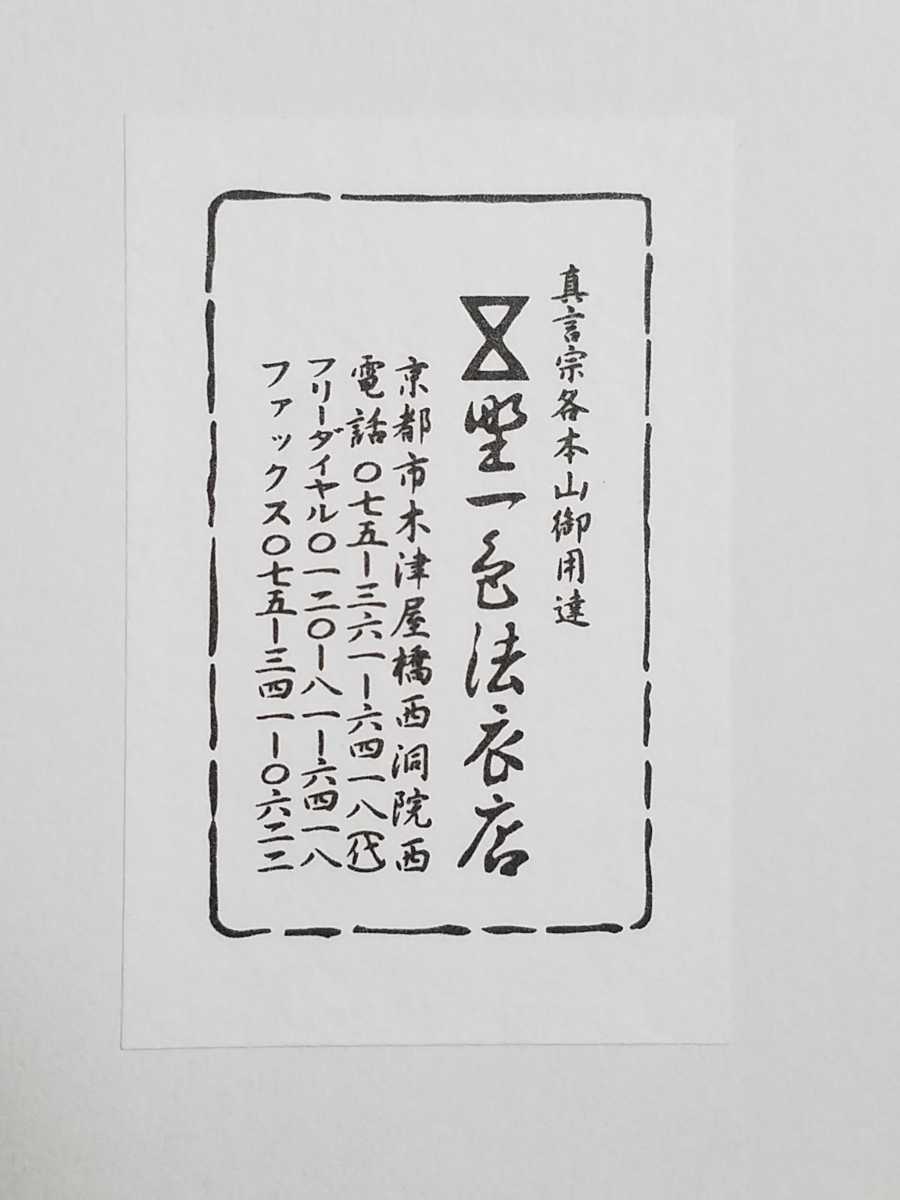 真言宗各本山御用達
野一色法衣店
京都市木津屋橋西洞院西
電話〇七五ー三六一ー六四一八(代)
フリーダイヤル〇一二〇ー八一ー六四一八
ファックス〇七五ー三四一ー〇六二二